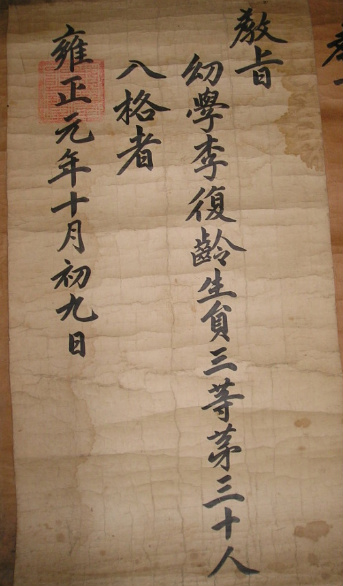 敎旨
幼學李復齡生貟三等苐三十人
入格者
雍正元年十月初九日